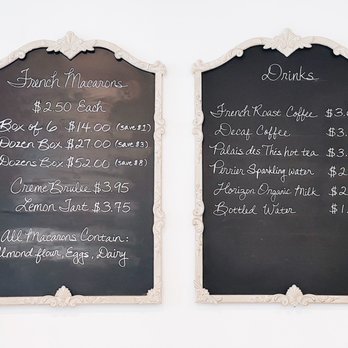 French Macarons
$2.50 Each
Box of 6 $14.00 (save $1)
Dozen Box $27.00 (save $3)
Dozens Box $52.00 (save $8)
Creme Brulee $3.95
Lemon Tart $3.75
All Macarons Contain:
Almond flour, Eggs, Dairy
Drinks
French Roast Coffee $3.
Decaf Coffee $3.
Palais des Thes hot tea $3.
Perrier Sparkling water $2
Horizon Organic Milk $2
Bottled Water $1